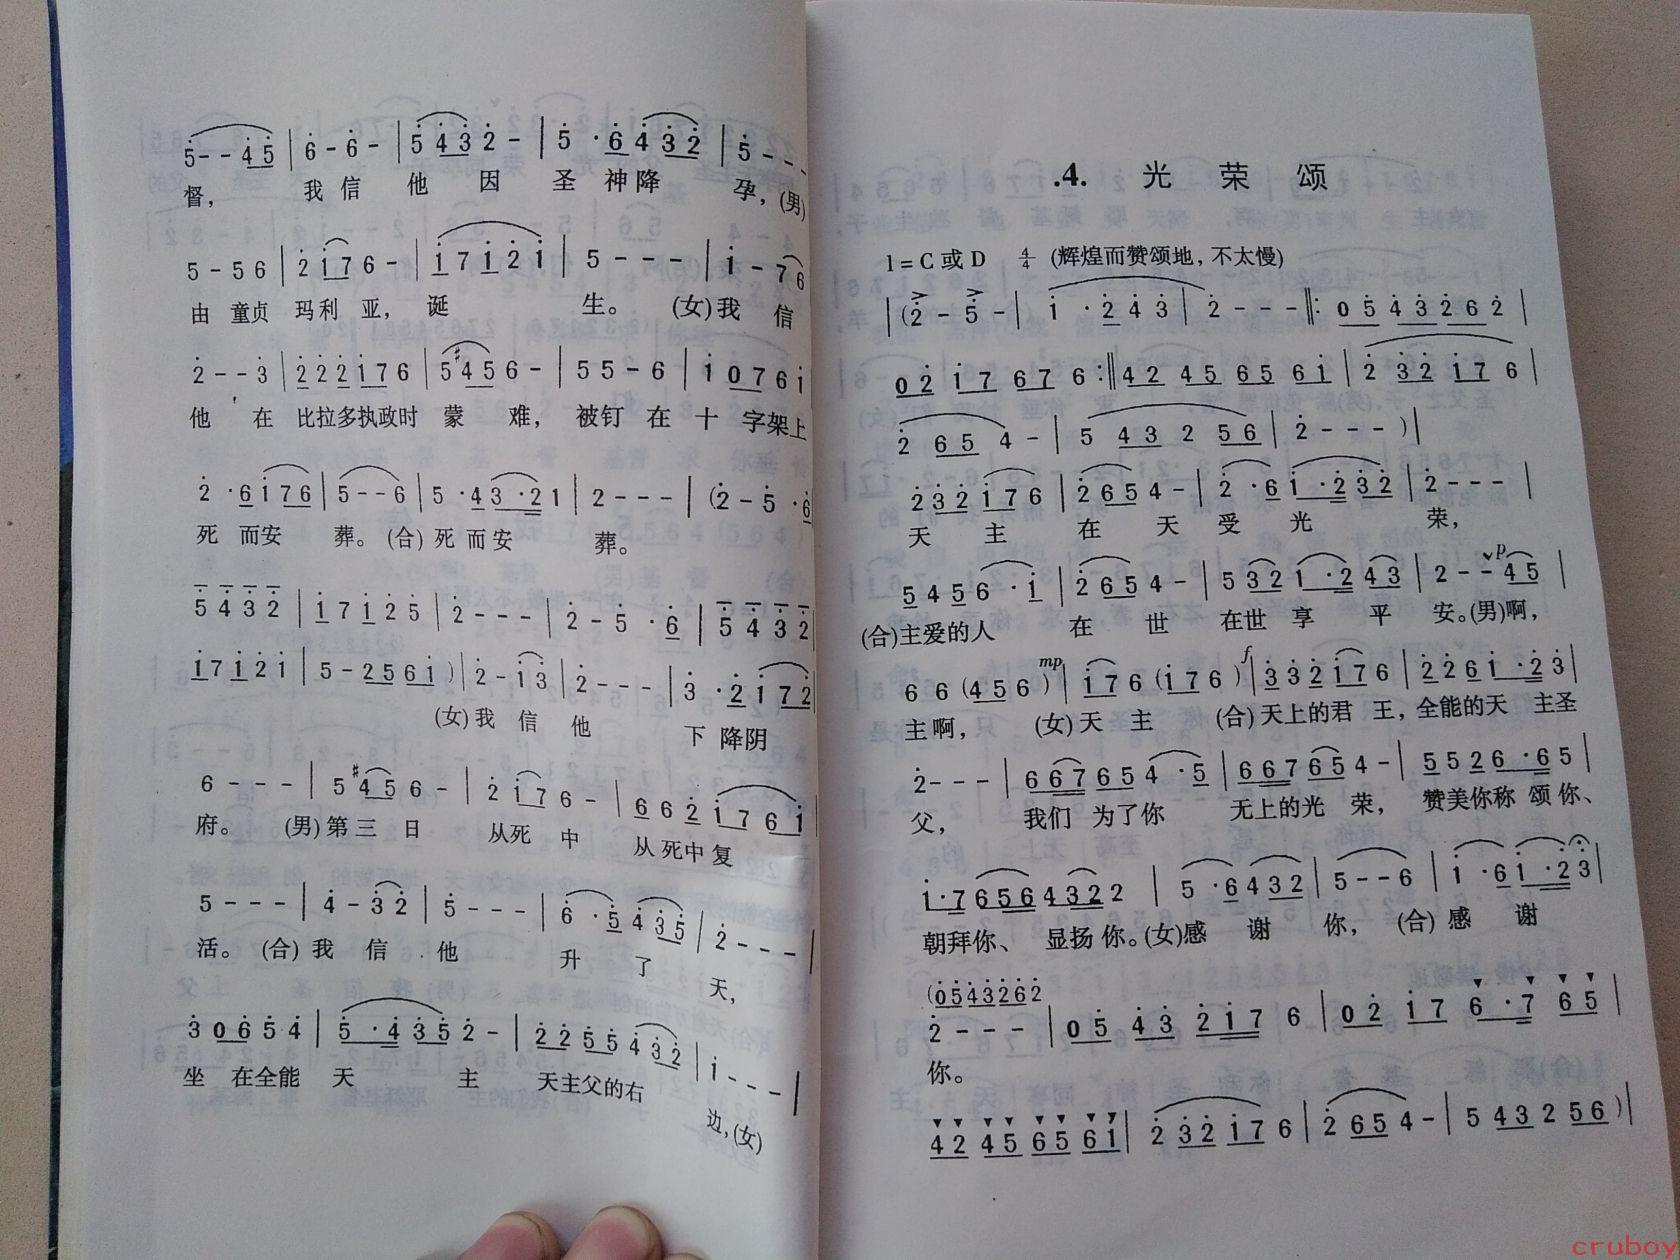 5--45 | 6-6- | 5432- | 5·6432 | 5---
督， 我信 他 因 圣神降 孕，(男)
5-56 | 2176- | 17121 | 5--- | 1-76
由 童贞 玛利 亚， 诞 生。 (女)我 信
2--3 | 222176 | 5#456- | 55-6 | 10761
他 ， 在 比拉多执政时 蒙 难， 被钉 在 十 字架上
2·6176 | 5--6 | 5·43·21 | 2--- | (2-5·6
死 而安 葬。 (合) 死 而安 葬。
5432 | 17125 | 2--- | 2-5·6 | 5432
17121 | 5-2561) | 2-13 | 2--- | 3·2172
(女)我 信 他 下 降阴
6--- | 5#456- | 2176- | 6621761
府。 (男)第 三 日 从死 中 从 死中 复
5--- | 4-32 | 5--- | 6·5435 | 2---
活。 (合) 我 信 他 升 了 天，
30654 | 5·4352- | 2255432 | 1---
坐 在全能 天 主 天主父的右 边，(女)
.4. 光 荣 颂
1=C 或 D 4/4 (辉煌而赞颂地，不太慢)
| (2-5- | 1·243 | 2--- ‖: 0543262 |
02 17 67 6 :‖ 42 45 65 61 | 2 32 17 6 |
2 65 4- | 5 43 2 56 | 2---) |
232176 | 2654- | 2·61·232 | 2--- |
天 主 在 天 受 光 荣，
5456·1 | 2654- | 5321·243 | 2--45 |
(合)主爱的人 在 世 在世 享 平 安。(男)啊，
66(456) | 176(176) | 332176 | 2261·23 |
主啊， (女) 天 主 (合) 天上的君 王，全能的天 主圣
2--- | 667654·5 | 667654- | 5526·65 |
父， 我们 为了你 无上的光 荣， 赞美你称 颂 你、
1·76564322 | 5·6432 | 5--6 | 1·61·23 |
朝拜你、 显扬 你。(女)感 谢 你， (合) 感 谢
(0543262
2--- | 05 43 217 6 | 02 17 6·7 65 |
你。
42 45 65 61 | 2 32 17 6 | 2 65 4- | 5 43 2 56) |
cruboy